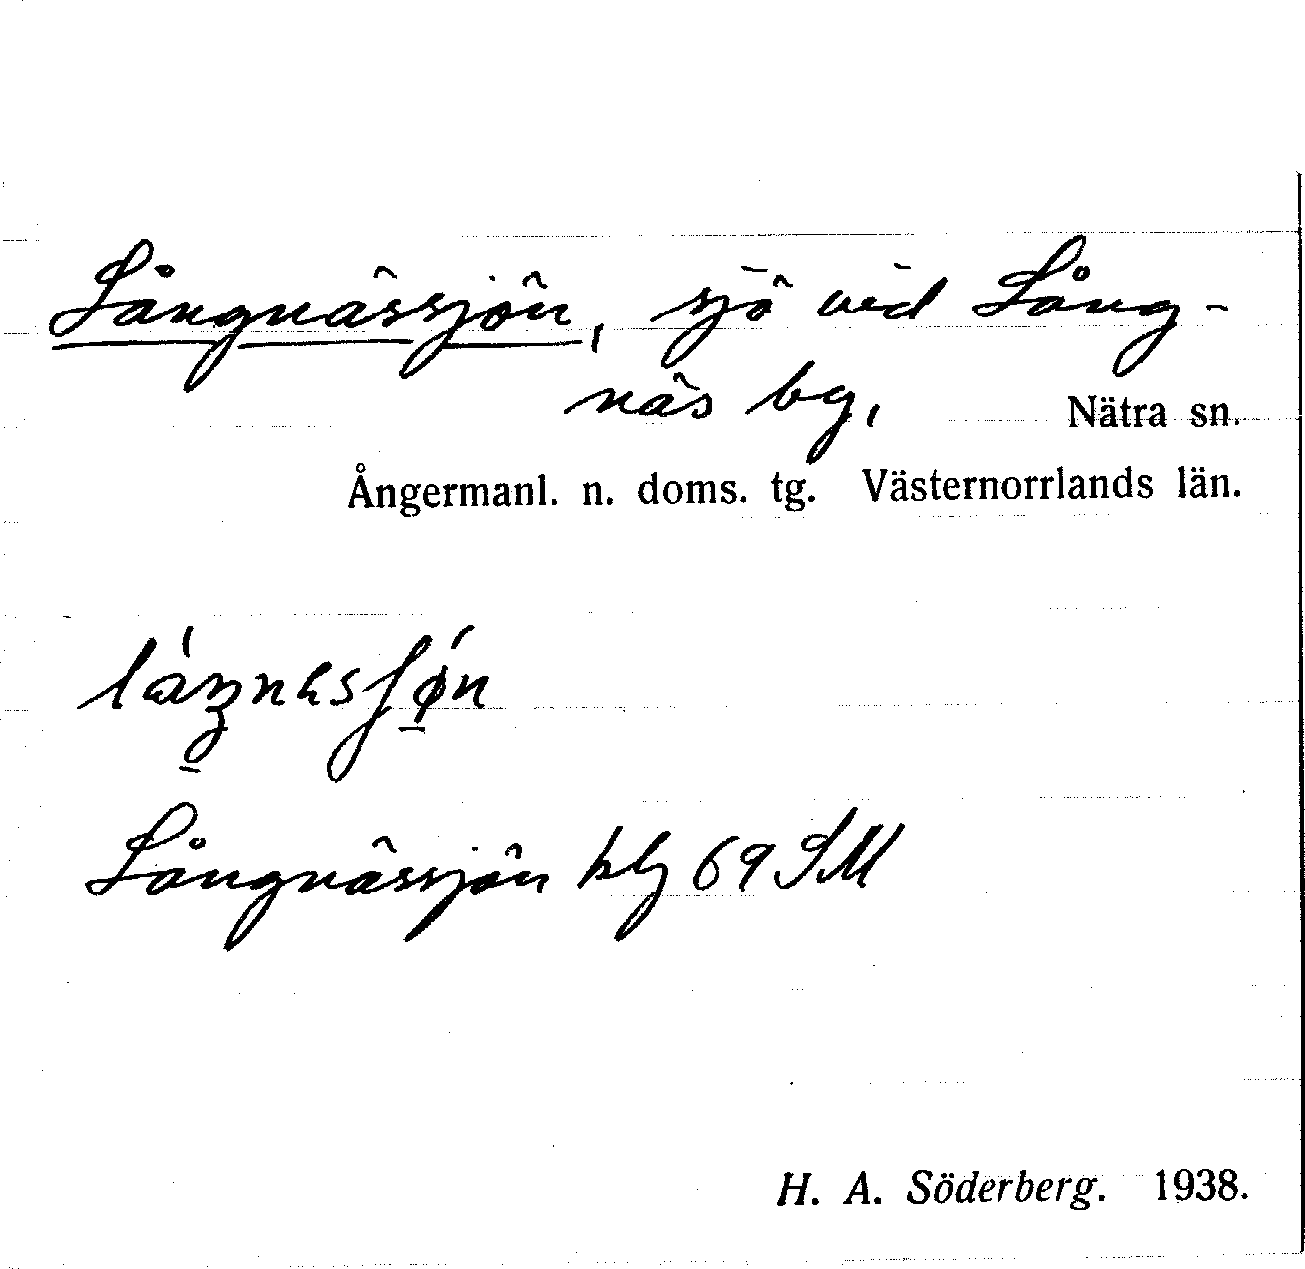 Långnässjön, sjö vid Lång-
näs bg, Nätra sn.
Ångermanl. n. doms. tg. Västernorrlands län.
Långnässjön klg 69 SM
H. A. Söderberg. 1938.